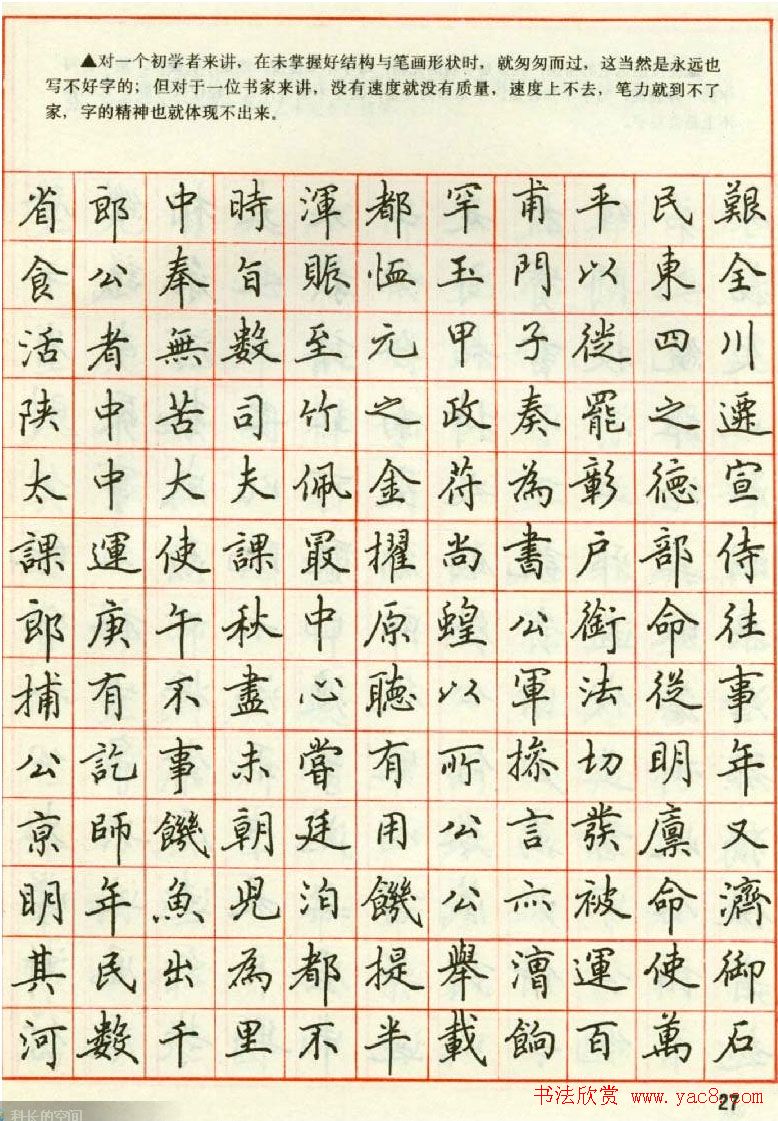 ▲对一个初学者来讲，在未掌握好结构与笔画形状时，就匆匆而过，这当然是永远也
写不好字的；但对于一位书家来讲，没有速度就没有质量，速度上不去，笔力就到不了
家，字的精神也就体现不出来。
省郎中時渾都罕甫平民艱
食公奉旨賑恤玉門以東全
活者無數至元甲子從四川
陝中苦司竹之政奏罷之遷
太中大夫佩金符為彰德宣
課運使課最擢尚書戶部侍
郎庚午秋中原蝗公銜命往
捕有不盡心聽以軍法從事
公訖事未嘗有所摻切明年
京師饑朝廷用公言發廩又
明年魚兒泊饑公亦被命濟
其民出為都提舉漕運使御
河數千里不半載餉百萬石
27
书法欣赏 www.yac8.com
科长的空间